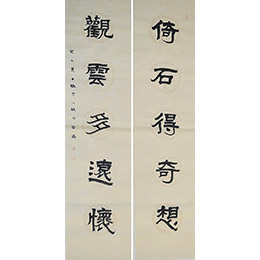 倚石得奇想
觀雲多遠懷